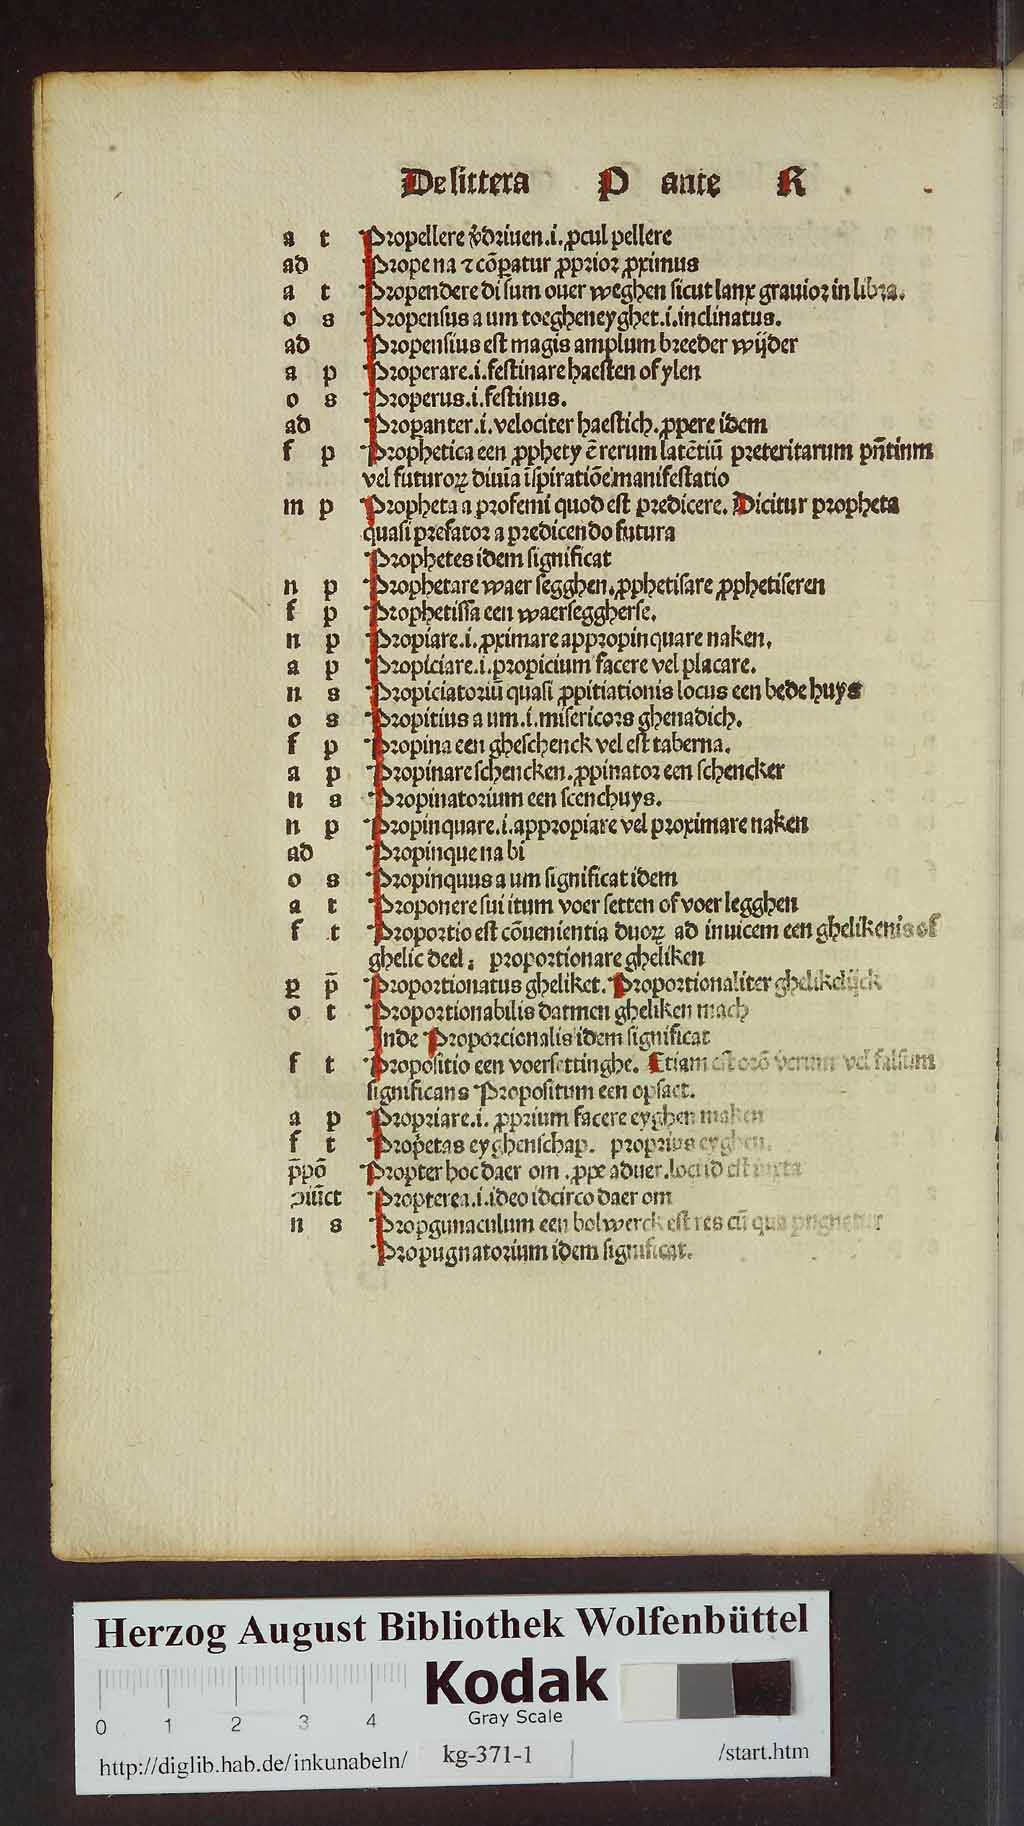 De littera P ante R
a t Propellere v̄driuen .i. ꝓcul pellere
ad Prope na ⁊ cōparatur ꝓprior ꝓximus
a t Propendere di sum ouer weghen sicut lanx grauior in libra.
o s Propensus a um toegheneyghet .i. inclinatus.
ad Propensius est magis amplum breeder wijder
a p Properare .i. festinare haesten of ylen
o s Properus .i. festinus.
ad Proꝑanter .i. velociter haestich. ꝓpere idem
f p Prophetica een ꝓphety ē rerum latētiū preteritarum pn̄tium
vel futuroꝝ diuīa īspiratiōe manifestatio
m p Propheta a profemi quod est predicere. Dicitur propheta
quasi prefator a predicendo futura
Prophetes idem significat
n p Prophetare waer segghen. ꝓphetisare ꝓphetiseren
f p Prophetissa een waerseggherse.
n p Propiare .i. ꝓximare appropinquare naken.
a p Propiciare .i. propicium facere vel placare.
n s Propiciatoriū quasi ꝓpitiationis locus een bede huys
o s Propitius a um .i. misericors ghenadich.
f p Propina een gheschenck vel est taberna.
a p Propinare schencken. ꝓpinator een schencker
n s Propinatorium een scenchuys.
n p Propinquare .i. appropiare vel proximare naken
ad Propinque na bi
o s Propinquus a um significat idem
a t Proponere sui itum voer setten of voer legghen
f t Proportio est cōuenientia duoꝝ ad inuicem een ghelikenis of
ghelic deel. proportionare gheliken
p p̄ Proportionatus gheliket. Proportionaliter ghelikelijck
o t Proportionabilis datmen gheliken mach
Inde Proporcionalis idem significat
f t Propositio een voersettinghe. Etiam est orō verum vel falsum
significans Propositum een opsaet.
a p Propriare .i. ꝓprium facere eyghen maken
f t Prop̄etas eyghenschap. proprius eyghen.
p̄pō Propter hoc daer om. ꝓpe aduer. loci id est iuxta
ↄiūct Propterea .i. ideo idcirco daer om
n s Propgunaculum een bolwerck est res cū qua
Propugnatorium idem significat.
Herzog August Bibliothek Wolfenbüttel
Kodak
Gray Scale
0 1 2 3 4
http://diglib.hab.de/inkunabeln/ kg-371-1 /start.htm